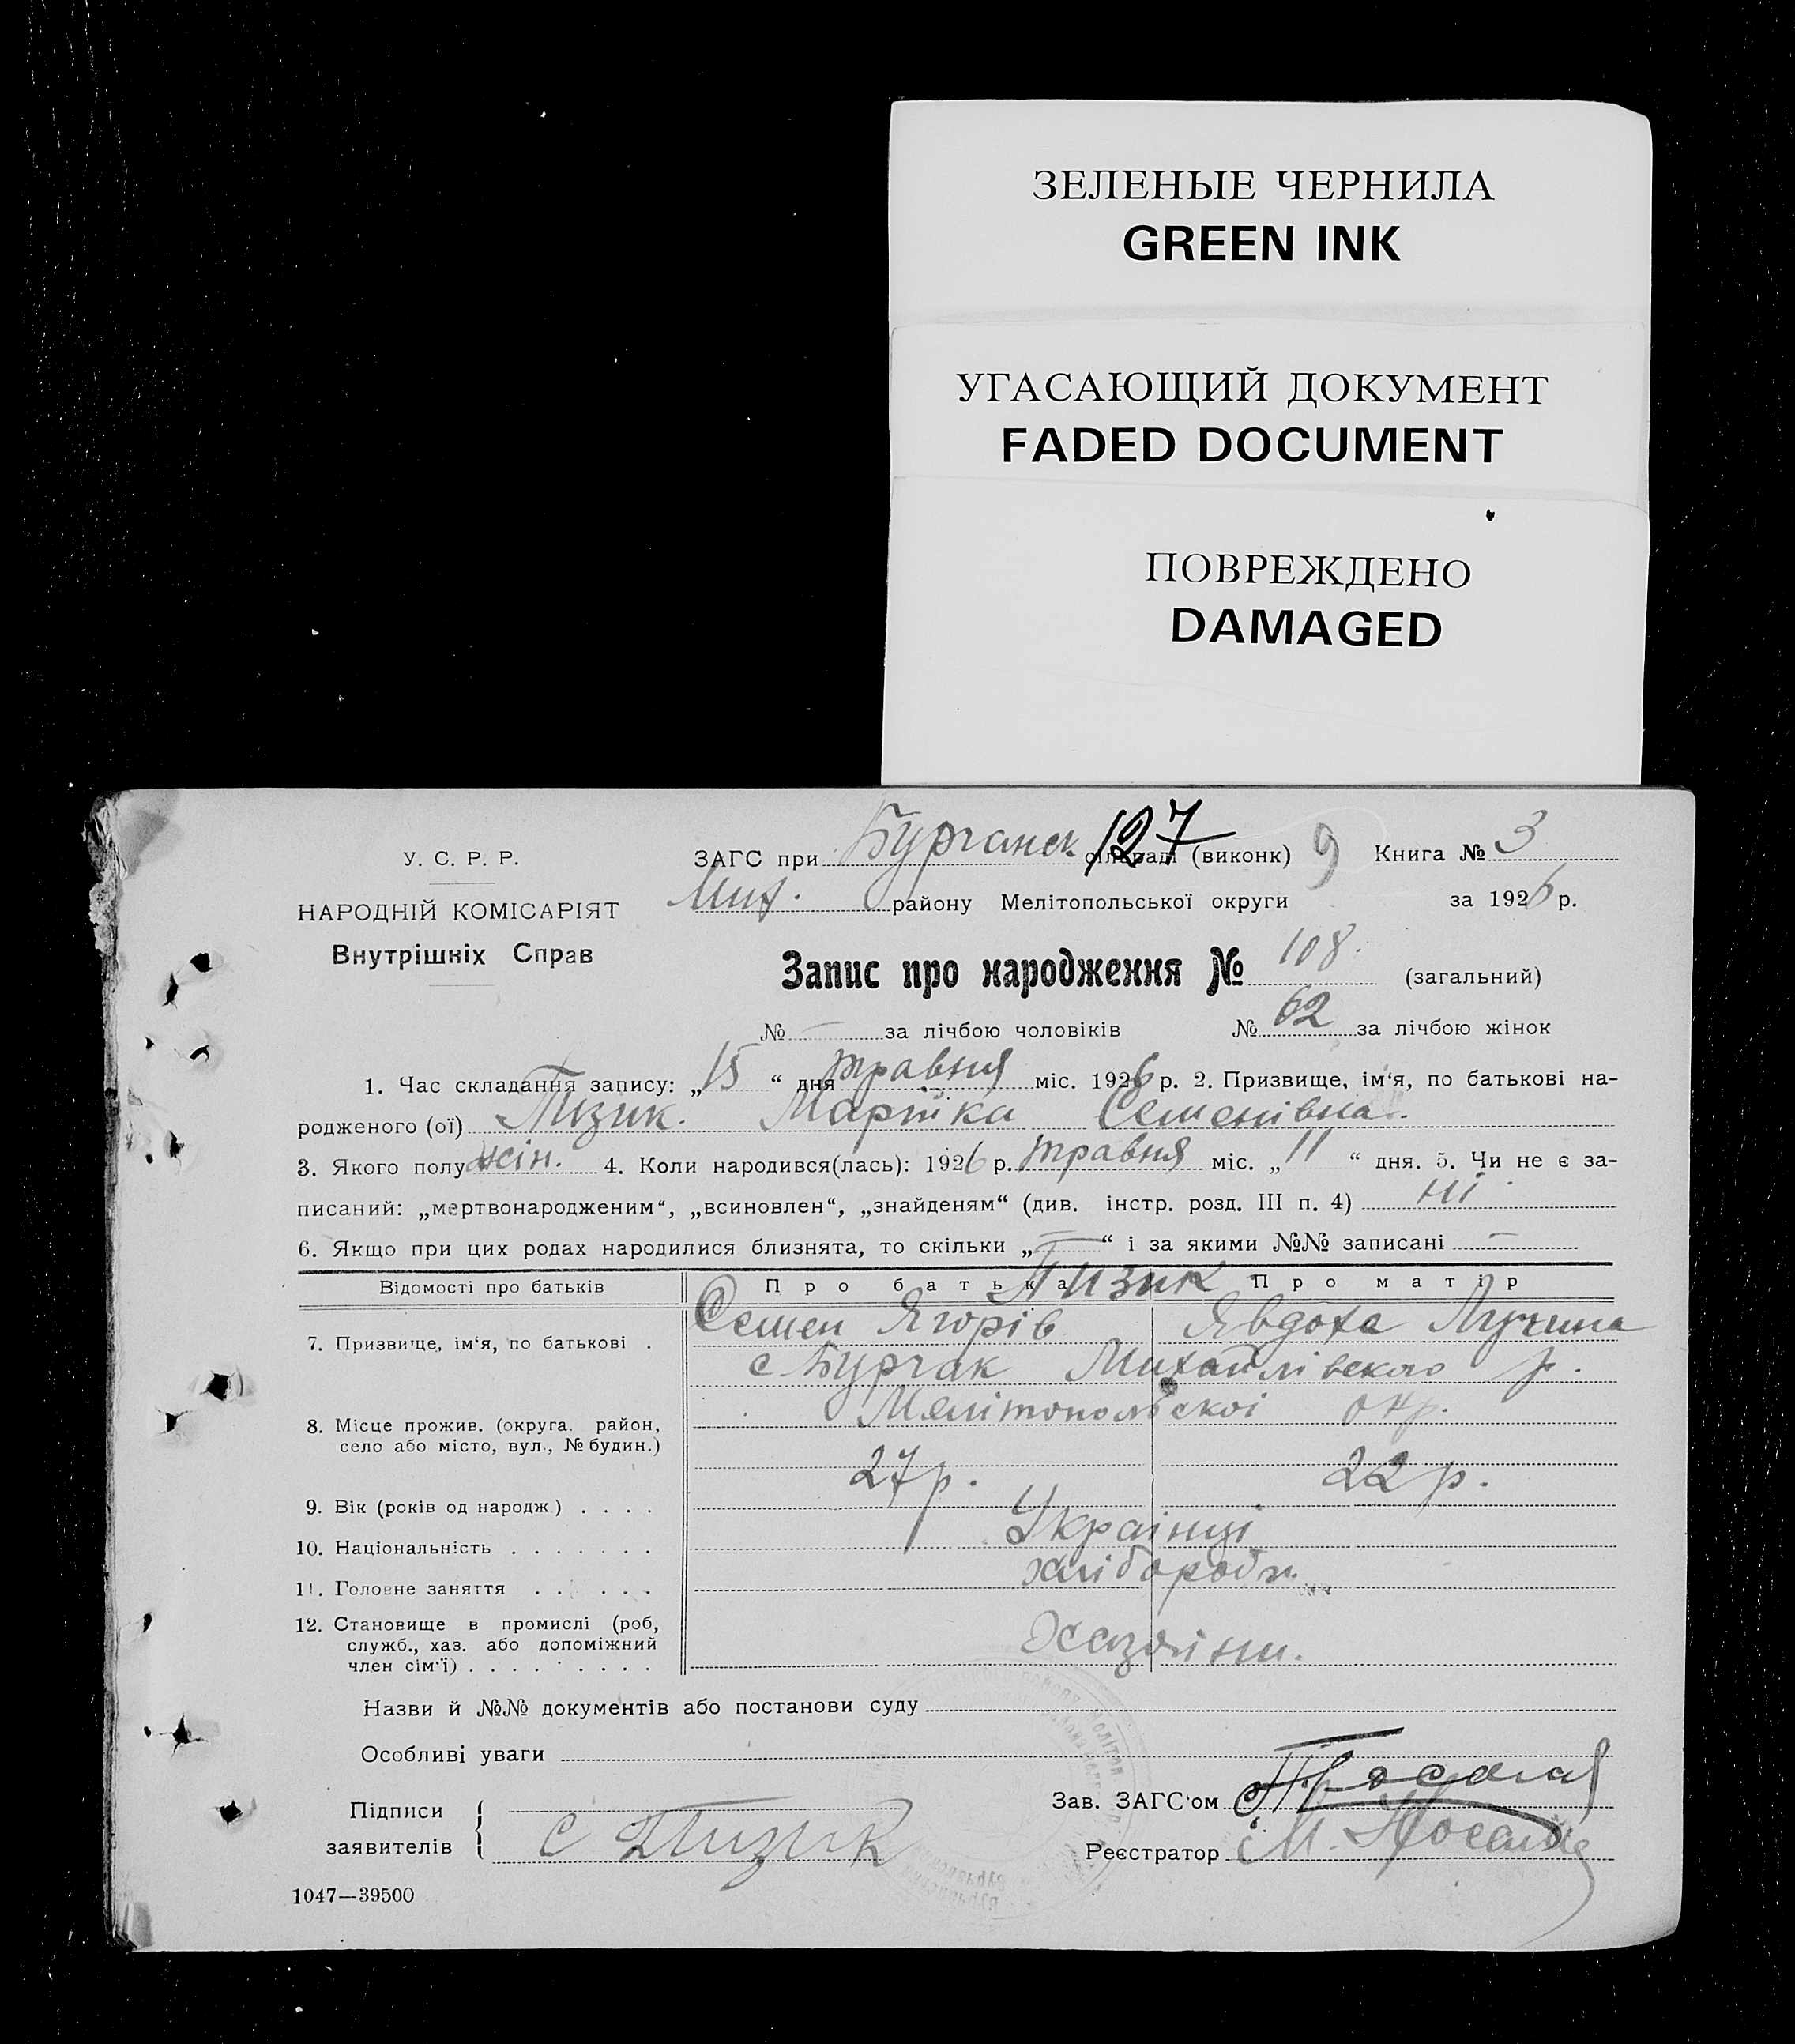 ЗЕЛЕНЫЕ ЧЕРНИЛА
GREEN INK
УГАСАЮЩИЙ ДОКУМЕНТ
FADED DOCUMENT
ПОВРЕЖДЕНО
DAMAGED
У. С. Р. Р.
НАРОДНІЙ КОМІСАРІЯТ
Внутрішніх Справ
ЗАГС при Бурчанск сільраді (виконк) 127 9 Книга № 3
Мих. району Мелітопольської округи за 1926 р.
Запис про народження № 108. (загальний)
№ — за лічбою чоловіків № 62 за лічбою жінок
1. Час складання запису: „15 “ дня травня міс. 1926 р. 2. Призвище, ім‘я, по батькові на-
родженого (ої) Пизик. Семенівна.
3. Якого полу жін. 4. Коли народився(лась): 1926 р. травня міс. „11 “ дня. 5. Чи не є за-
писаний: „мертвонародженим“, „всиновлен“, „знайденям“ (див. інстр. розд. III п. 4) ні
6. Якщо при цих родах народилися близнята, то скільки „— “ і за якими №№ записані —
Відомості про батьків Про батька Про матір
Пизик
7. Призвище, ім‘я, по батькові . Семен Ягорів Явдоха Лучина
с Бурчак Михайлівского р.
8. Місце прожив. (округа, район,
село або місто, вул., № будин.)
Мелітопольскоі окр.
9. Вік (років од народж) . . . . 27 р. 22 р.
10. Національність . . . . . . . Украінці
11. Головне заняття . . . . . . хлібороби
12. Становище в промислі (роб,
служб., хаз. або допоміжний
член сім‘ї) . . . . . . . . . Хазяіни.
Назви й №№ документів або постанови суду
Особливі уваги
Підписи
заявителів
С Пизик
Зав. ЗАГС‘ом
Реєстратор М.
1047—39500